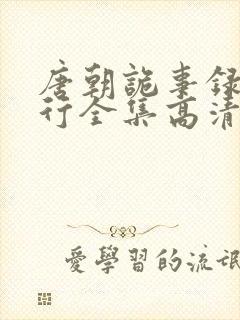 唐朝詭事録
行全集高清
愛學習的流氓